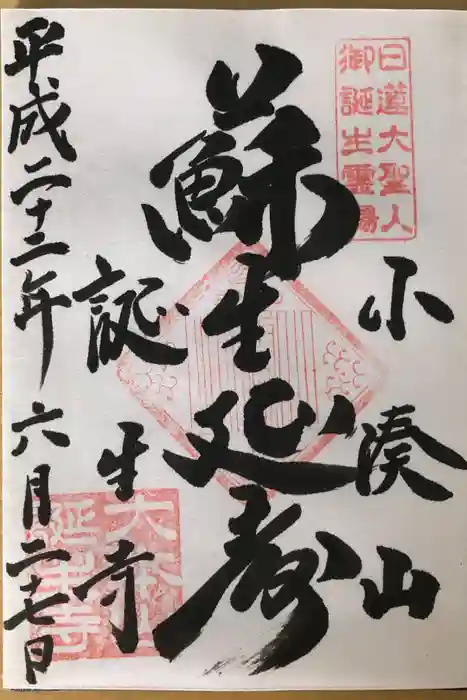 日蓮大聖人
御誕生霊場
小湊山
蘇生延寿
誕生寺
平成二十二年六月二十七日